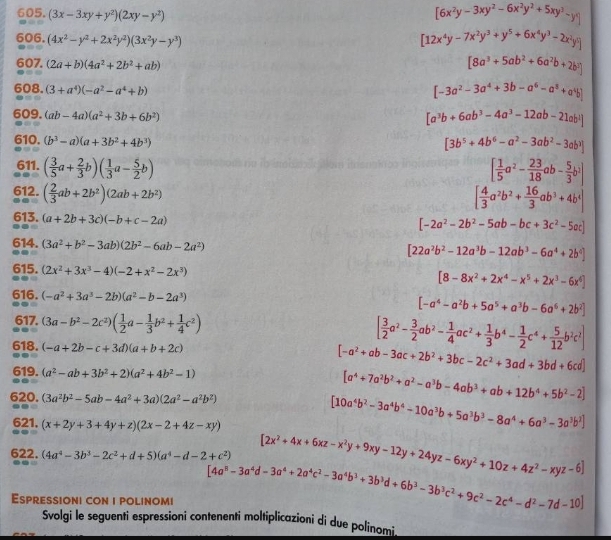 605. (3x − 3xy + y²)(2xy − y²) [6x²y − 3xy² − 6x²y² + 5xy³ − y⁴]
606. (4x² − y² + 2x²y²)(3x²y − y³) [12x⁴y − 7x²y³ + y⁵ + 6x⁴y³ − 2x²y⁵]
607. (2a + b)(4a² + 2b² + ab) [8a³ + 5ab² + 6a²b + 2b³]
608. (3 + a⁴)(−a² − a⁴ + b) [−3a² − 3a⁴ + 3b − a⁶ − a⁸ + a⁴b]
609. (ab − 4a)(a² + 3b + 6b²) [a³b + 6ab³ − 4a³ − 12ab − 21ab²]
610. (b³ − a)(a + 3b² + 4b³) [3b⁵ + 4b⁶ − a² − 3ab² − 3ab³]
611. (3/5a + 2/3b)(1/3a − 5/2b) [1/5a² − 23/18ab − 5/3b²]
612. (2/3ab + 2b²)(2ab + 2b²) [4/3a²b² + 16/3ab³ + 4b⁴]
613. (a + 2b + 3c)(−b + c − 2a) [−2a² − 2b² − 5ab − bc + 3c² − 5ac]
614. (3a² + b² − 3ab)(2b² − 6ab − 2a²) [22a²b² − 12a³b − 12ab³ − 6a⁴ + 2b⁴]
615. (2x² + 3x³ − 4)(−2 + x² − 2x³) [8 − 8x² + 2x⁴ − x⁵ + 2x³ − 6x⁶]
616. (−a² + 3a³ − 2b)(a² − b − 2a³) [−a⁴ − a²b + 5a⁵ + a³b − 6a⁶ + 2b²]
617. (3a − b² − 2c²)(1/2a − 1/3b² + 1/4c²) [3/2a² − 3/2ab² − 1/4ac² + 1/3b⁴ − 1/2c⁴ + 5/12b²c²]
618. (−a + 2b − c + 3d)(a + b + 2c) [−a² + ab − 3ac + 2b² + 3bc − 2c² + 3ad + 3bd + 6cd]
619. (a² − ab + 3b² + 2)(a² + 4b² − 1) [a⁴ + 7a²b² + a² − a³b − 4ab³ + ab + 12b⁴ + 5b² − 2]
620. (3a²b² − 5ab − 4a² + 3a)(2a² − a²b²) [10a⁴b² − 3a⁴b⁴ − 10a³b + 5a³b³ − 8a⁴ + 6a³ − 3a³b²]
621. (x + 2y + 3 + 4y + z)(2x − 2 + 4z − xy) [2x² + 4x + 6xz − x²y + 9xy − 12y + 24yz − 6xy² + 10z + 4z² − xyz − 6]
622. (4a⁴ − 3b³ − 2c² + d + 5)(a⁴ − d − 2 + c²) [4a⁸ − 3a⁴d − 3a⁴ + 2a⁴c² − 3a⁴b³ + 3b³d + 6b³ − 3b³c² + 9c² − 2c⁴ − d² − 7d − 10]
ESPRESSIONI CON I POLINOMI
Svolgi le seguenti espressioni contenenti moltiplicazioni di due polinomi.